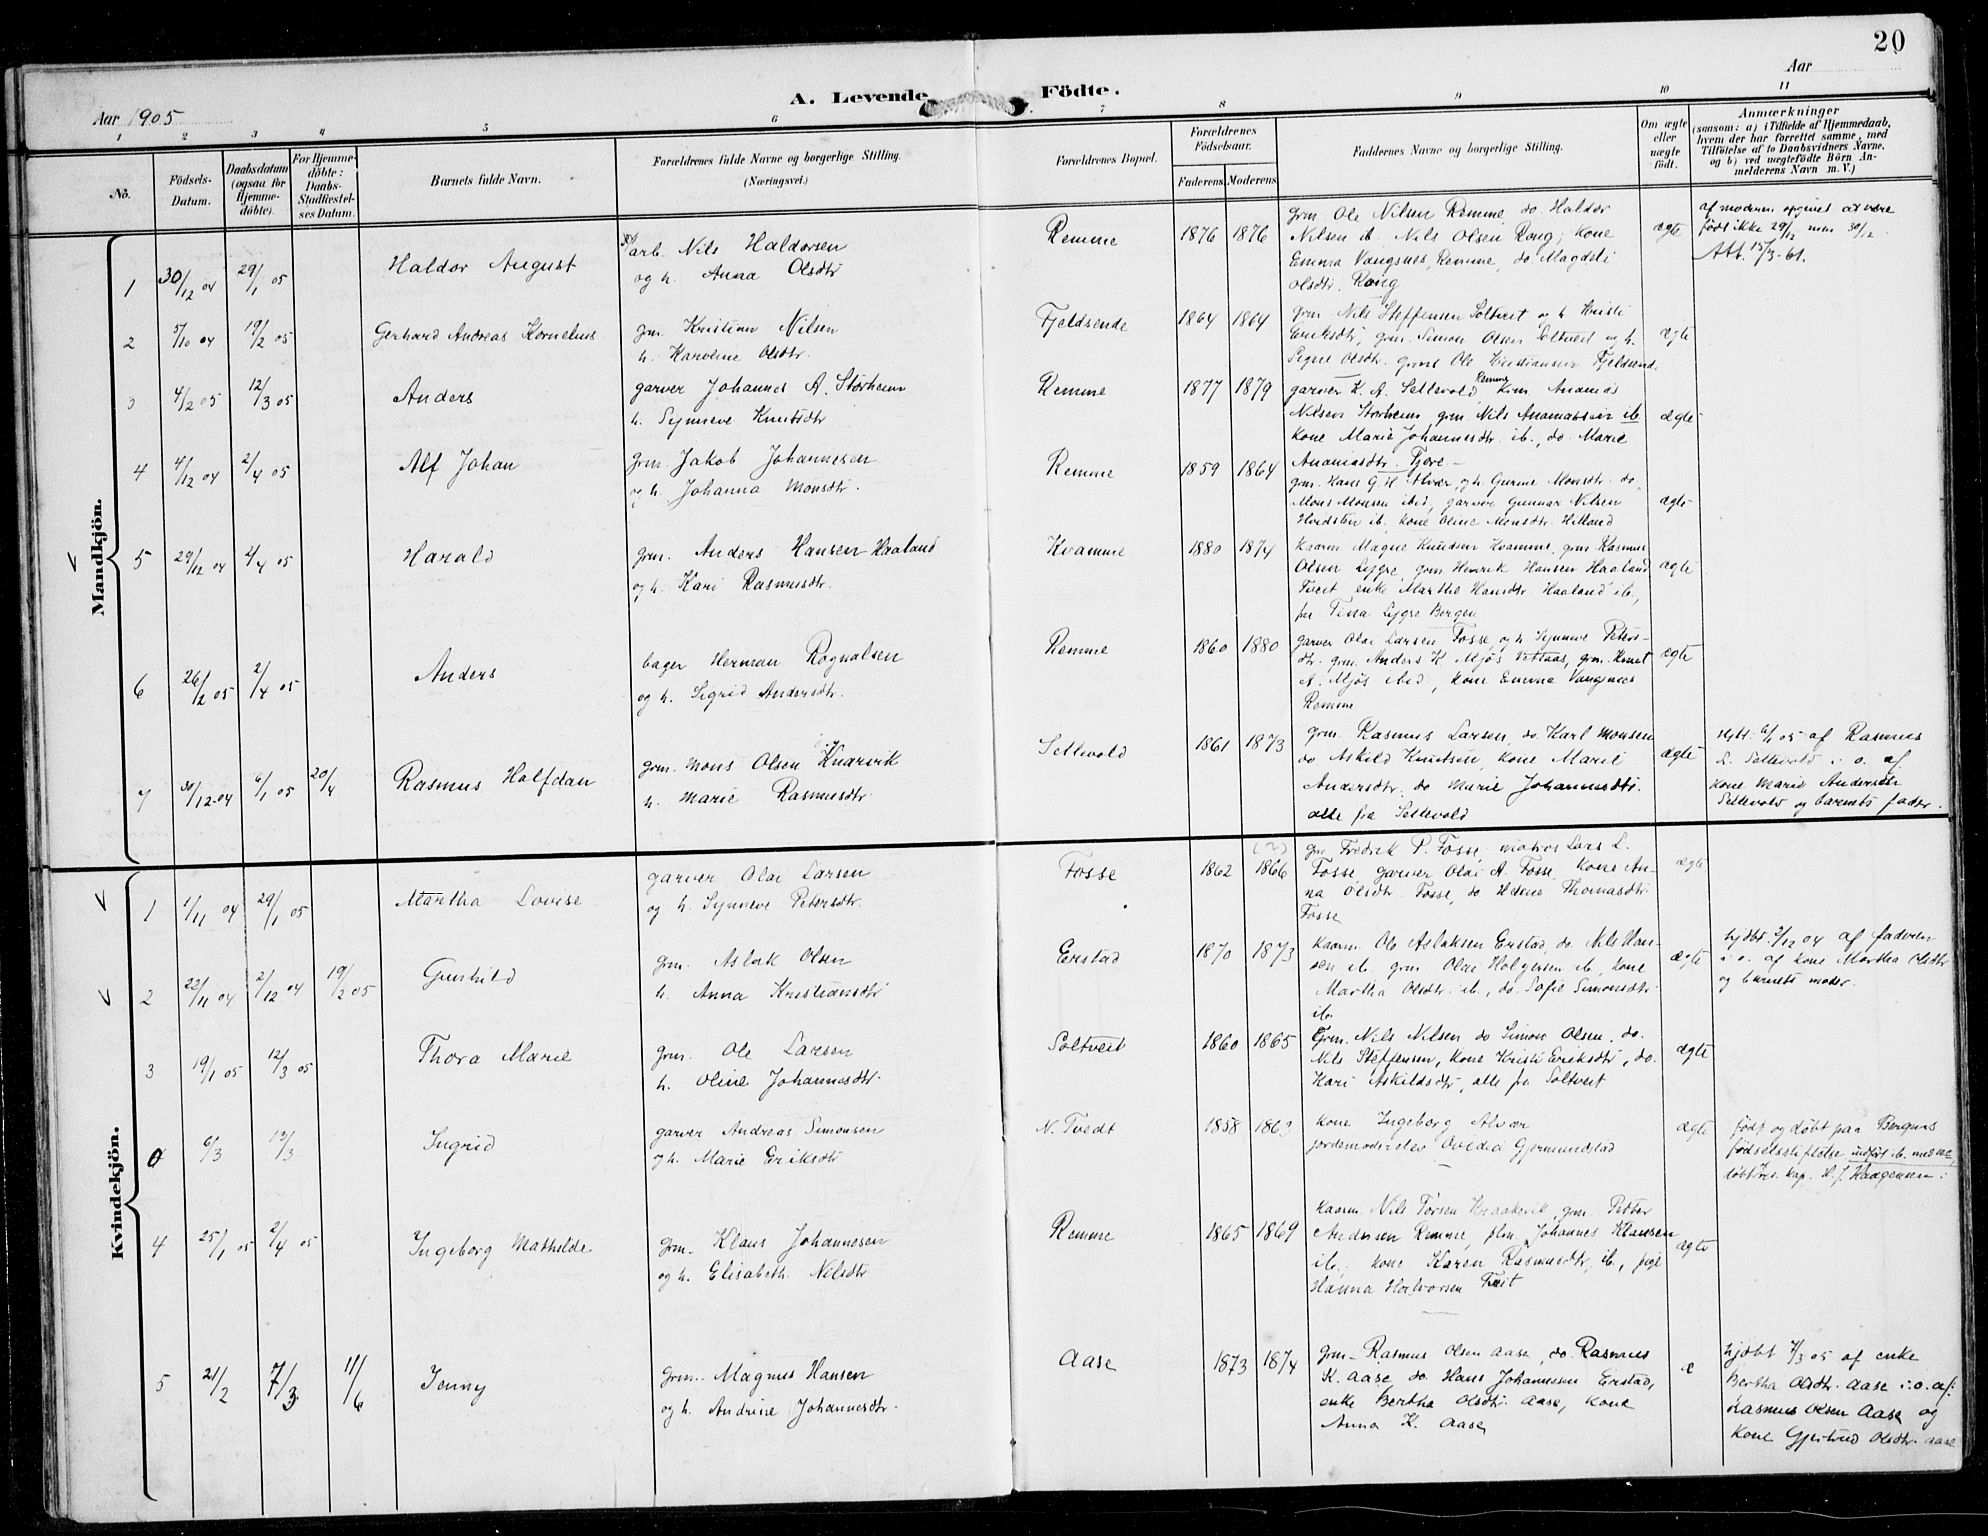 20
Aar 1905
A. Levende Födte.
Aar
1 2 3 4 5 6 7 8 9 10 11
Nö.
Födsels-Datum.
Daabsdatum (ogsaa for Hjemme-döbte).
For Hjemme-döbte: Daabs-Stadfæstel-ses Datum.
Barnets fulde Navn.
Forældrenes fulde Navne og borgerlige Stilling.
(Næringsvei.)
Forældrenes Bopæl.
Forældrenes Födselsaar.
Faderens. Moderens.
Faddernes Navne og borgerlige Stilling.
Om ægte eller uægte født.
Anmærkninger
(saasom: a) i Tilfælde af Hjemmedaab,
hvem der har forrettet samme, med
Tilföielse af to Daabsvidners Navne.
og b) ved uægtefödte Börn An-
melderens Navn m. V.)
Mandkjön.
1 30/12 04 29/1 05 Haldor August
arb. Nils Haldorsen
og h. Anna Olsdtr
Remme 1876 1876
grm Ole Nilsen Remme, do. Haldor
Nilsen ib. Nils Olsen Rong; kone
Emma Vangsnes, Remme, do. Magdeli
Olsdtr. Rong
ægte
af moderen opgivet at være
født ikke 29/12 men 30/12.
Att. 15/3-61.
2 5/10 04 19/2 05 Gerhard Andreas Kornelius
grm. Kristian Nilsen
h. Karoline Olsdtr.
Fjeldsende 1864 1864
grm. Nils Steffensen Soltveit og h Kristi
Eriksdtr, grm. Simon Olsen Soltveit og h.
Signe Olsdtr. grms Ole Kristiansen Fjeldsend.
ægte
3 4/2 05 12/3 05 Anders
garver Johannes A. Storheim
h. Synneve Knutsdtr
Remme 1877 1879
garver K. A. Sellevold Remme, Kom Ananias
Nilsen Storheim grm. Nils Ananiassen ib
kone Marie Johannesdtr. ib., do. Marie
Ananiasdtr. Fjære
ægte
4 4/12 04 2/4 05 Alf Johan
grm Jakob Johannesen
og h. Johanna Monsdtr.
Remme 1859 1864
grm. Hans G. H. Alvær, og h Gurine Monsdtr. do.
Mons Monsen ibid, garver Gunnar Nilsen
Hvidsten ib. kone Oline Monsdtr. Hilland
ægte
5 29/12 04 2/4 05 Harald
grm. Anders Hansen Haaland
og h. Kari Rasmusdtr.
Kvamme 1880 1874
kaarm. Magne Knudsen Kvamme, grm. Rasmus
Olsen Lygre, grm Henrik Hansen Haaland
Tveit, enke Marthe Hansdtr. Haaland ib.,
pu Tina Lygre Bergen
ægte
6 26/2 05 2/4 05 Anders
bager Herman Rognalsen
og h. Sigrid Andersdtr.
Remme 1860 1880
garver Olai Larsen Fosse, og h Synneve Peters-
dtr. grm. Anders K. Mjøs Vettaas, grm. Knut
A. Mjøs ibid, kone Emma Vangsnes
Remme
ægte
7 30/12-04 6/1 05 20/4 Rasmus Halfdan
grm. Mons Olsen Knarvik
h. Marie Rasmusdtr.
Sellevold 1861 1873
grm. Rasmus Larsen, do. Karl Monsen
do Askild Knutsen, kone Marie
Andersdtr. do Marie Johannesdtr.
alle fra Sellevold
ægte
hjbt. 6/1 05 af Rasmus
L. Sellevold i. o. af
kone Marie Andersdtr
Sellevold og barnets fader.
Kvindekjön.
1 1/11 04 29/1 05 Martha Lovise
garver Olai Larsen
og h. Synneve Petersdtr.
Fosse 1862 (?) 1866
gm Fredrik P. Fosse, matros Lars L.
Fosse, garver Olai A. Fosse, kone An-
na Olsdtr. Fosse, do Helene Thomasdtr.
Fosse
ægte
2 22/11 04 2/12 04 19/2 05 Gunhild
grm. Aslak Olsen
h. Anna Kristiansdtr
Erstad 1870 1873
kaarm. Ole Aslaksen Erstad, do. Nils Han-
sen ib. grm. Olai Holgersen ib., kone
Martha Olsdtr. ib., do. Sofie Simonsdtr
ib.
ægte
hjdbt. 2/12 04 af faderen
i. o. af kone Martha Olsdtr
og barnets moder.
3 19/1 05 12/3 05 Thora Marie
grm. Ole Larsen
h. Oline Johannesdtr.
Soltveit 1860 1865
Grm. Nils Nilsen do Simon Olsen. do.
Nils Steffensen, kone Kristi Eriksdtr, do.
Kari Askildsdtr, alle fra Soltveit
ægte
0 6/3 13/3 Ingrid
garver Andreas Simonsen
og h. Marie Eriksdtr
N. Tvedt 1858 1863
kone Ingeborg Alvær
jordemoderelev Ovidia Gjermundstad
ægte
født og døbt paa Bergens
fødselsstiftelse indført ib. med no
døbt res. kap. H. J. Haagensen.
4 25/1 05 2/4 05 Ingeborg Mathilde
grm. Klaus Johannesen
og h. Elisabeth Nilsdtr
Remme 1865 1869
kaarm. Nils Torsen Kraakevik, grm. Petter
Andersen Remme, Johannes Klausen
ib., kone Karen Rasmusdtr, ib., pige
Hanna Halvorsen Tveit
ægte
5 21/2 7/3 11/6 Jenny
Grm. Magnus Hansen
og h. Andrine Johannesdtr.
Aase 1873 1874
grm- Rasmus Olsen Aase, do. Rasmus
K. Aase, do. Hans Johannesen Erstad,
enke Bertha Olsdtr. Aase, kone
Anna K. Aase
e
hjdbt 7/3 05 af enke
Bertha Olsdtr. Aase i. o. af:
Rasmus Olsen Aase og
kone Gjertrud Olsdtr. Aase